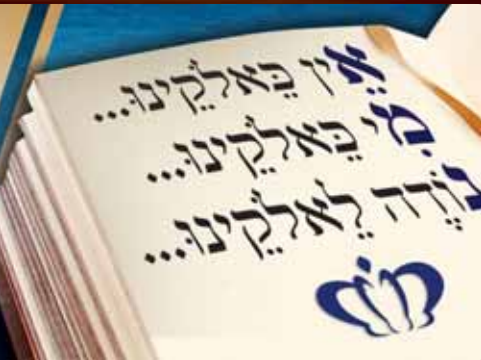 אֵין כֵּאלֹקֵינוּ...
מִי כֵאלֹקֵינוּ...
נוֹדֶה לֵאלֹקֵינוּ...